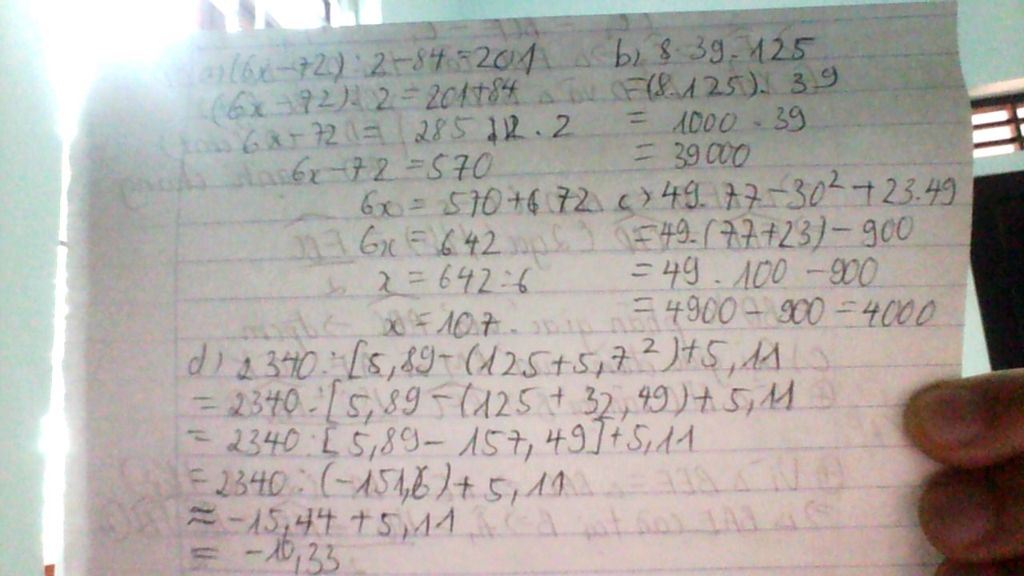 a) (6x-72) : 2-84=201
(6x-72) : 2 = 201+84
6x-72 = 285 . 2
6x-72 = 570
6x = 570+ 72
6x = 642
x = 642 : 6
x = 107
b) 8.39.125
=(8.125). 39
= 1000 . 39
= 39000
c) 49.77-30² + 23.49
=49.(77+23) - 900
= 49 . 100 - 900
= 4900 - 900 = 4000
d) 2340 : [5,89-(125+5,7²)+5,11
= 2340 : [5,89-(125+ 32,49)+5,11
= 2340 : [5,89- 157,49]+5,11
= 2340 : (-151,6)+ 5,11
≈ -15,44 + 5,11
= -10,33